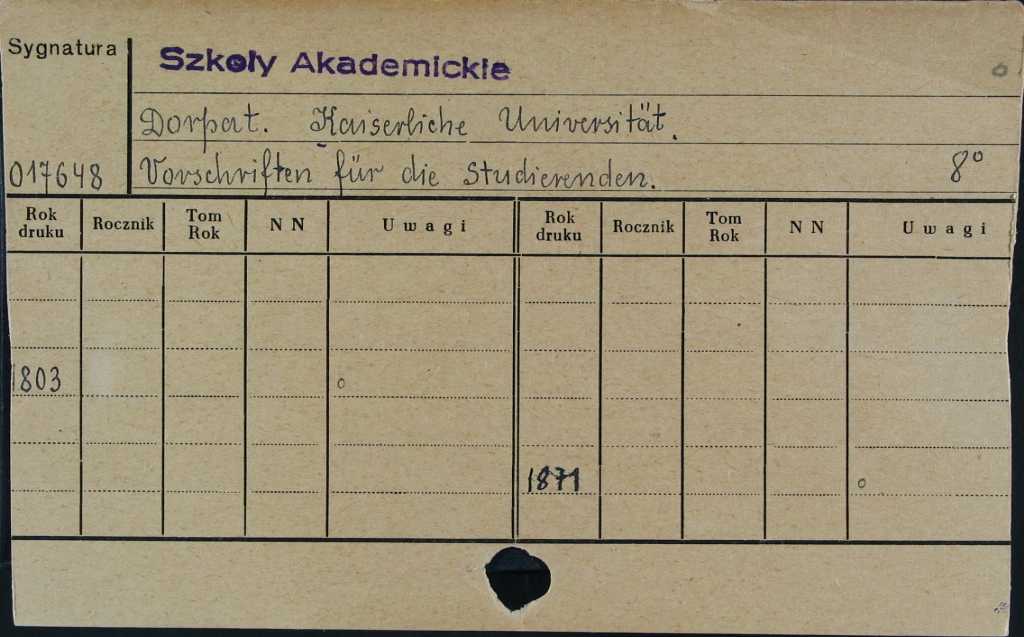 Sygnatura
Szkoły Akademickie
Dorpat. Kaiserliche Universität.
017648 Vorschriften für die Studierenden. 8º
Rok druku Rocznik Tom Rok N N Uwagi Rok druku Rocznik Tom Rok N N Uwagi
1803 o
1871 o